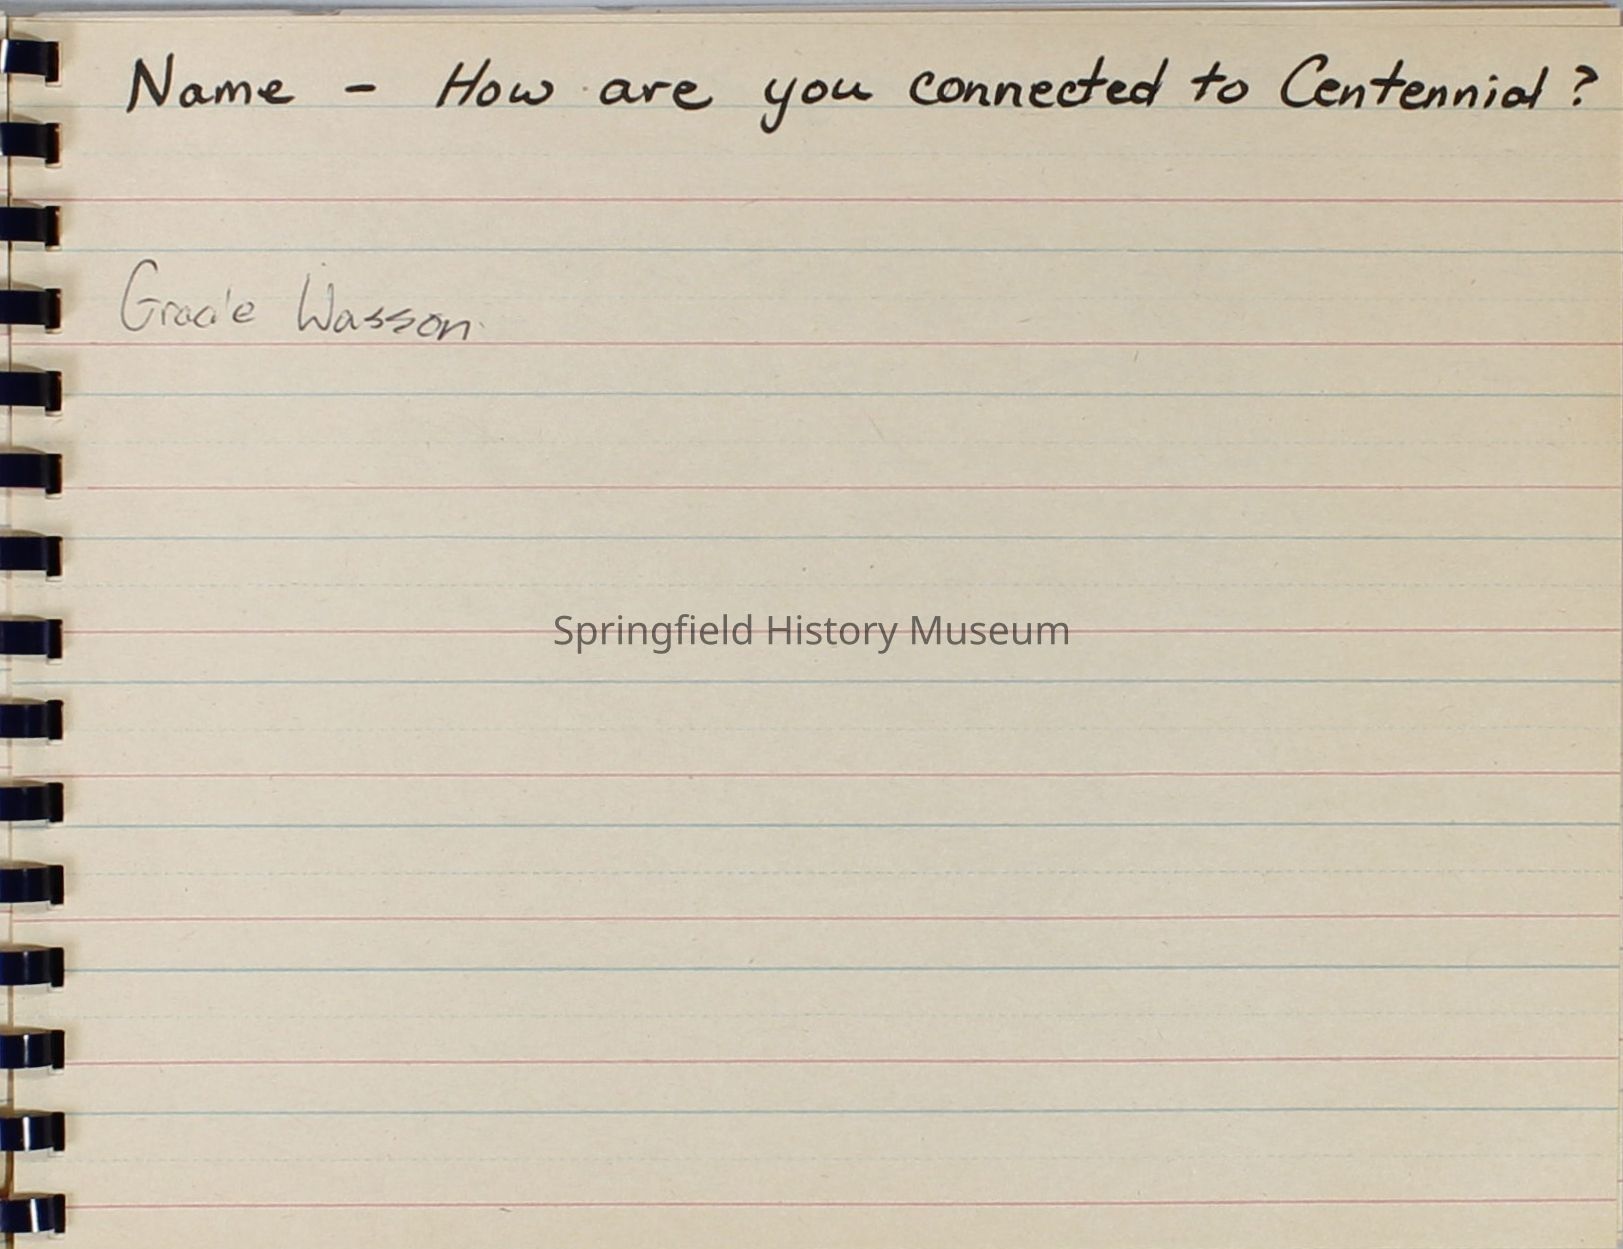 Name - How are you connected to Centennial?
Gracie Wasson
Springfield History Museum